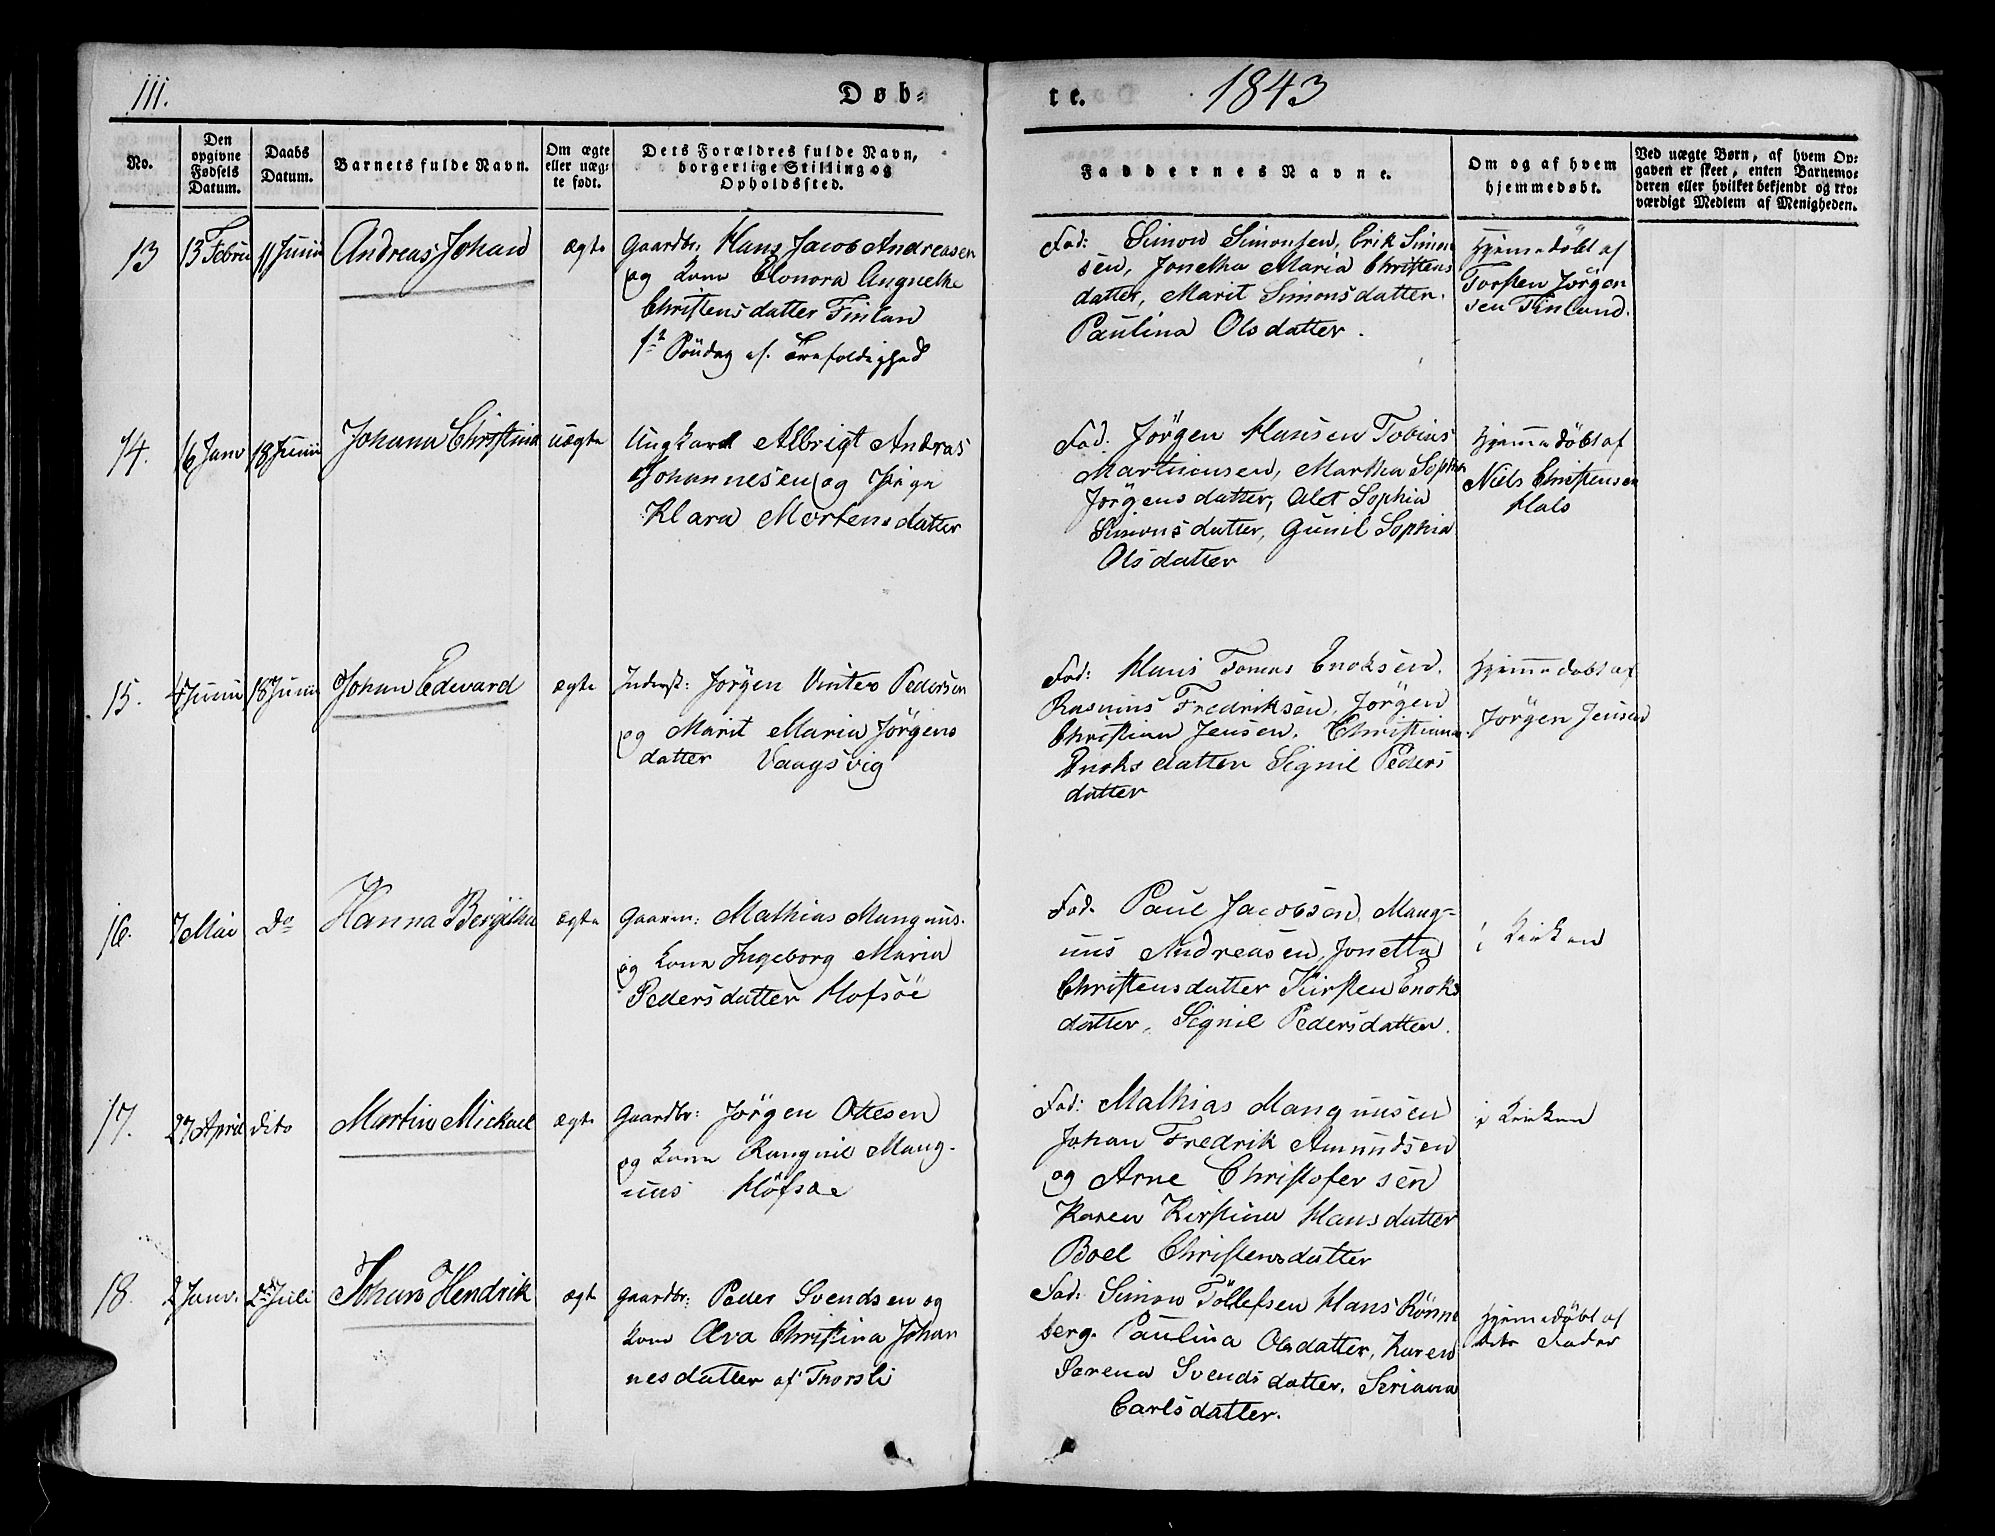 111.
Døb=
te.
1843
No.
Den opgivne Fødsels Datum.
Daabs Datum.
Barnets fulde Navn.
Om ægte eller uæg- te født.
Dets Forældres fulde Navn, borgerlige Stilling og Opholdssted.
Faddernes Navne.
Om og af hvem hjemmedøbt.
Ved uægte Børn, af hvem Op- gaven er skeet, enten Barnemo- deren eller hvilket bekjendt og tro- værdigt Medlem af Menigheden.
13
13 Febru
11 Junii
Andreas Johan
ægte
Gaardbr: Hans Jacob Andreasen
og Kone Elonora Angnethe
Christensdatter Finlan
1ste Söndag ef. Trefoldighed
Fad: Simon Simonsen, Erik Simon
sen, Jonetha Maria Christens
datter, Marit Simonsdatter.
Paulina Olsdatter.
Hjemedöbt af
Torsten Jörgen
sen Finland.
14.
16 Janv
18 Junii
Johana Christina
uægte
Ungkarl Albrigt Andras
Johannesen og Pige
Klara Mortensdatter
Fad. Jörgen Hansen Tobias
Marthinusen, Martha Sophia
Jörgensdatter, Olet Sophia
Simonsdatter, Gunil Sophia
Olsdatter
Hjemmedöbt af
Niels Christensen
Hals
15.
4 Junii
18 Junii
Johan Edevard
ægte
Inderst: Jörgen Vinter Pedersen
og Marit Maria Jörgens
datter Vaagsvig
Fad: Hans Tomas Enoksen.
Rasmus Fredriksen, Jörgen
Christian Jensen. Christianna
Enoksdatter Signil Peders
datter
Hjemmedöbt af
Jörgen Jensen
16.
7 Mai
Do
Hanna Bergitha
ægte
Gaarm: Mathias Mangnus.
og Kone Ingeborg Maria
Pedersdatter Hofsöe
Fad. Paul Jacobsen, Mang=
nus Andreasen, Jonetta
Christensdatter Kirsten Enoks
datter, Signil Pedersdatter.
i Kirken
17.
27 April
dito
Martin Mickael
ægte
Gaardbr: Jörgen Ottesen
og Kone Rangnil Mang-
nus Höfsöe
Fad: Mathias Mangnusen
Johan Fredrik Amundsen
og Arne Christofersen
Karen Kirstina Hansdatter
Boel Christensdatter
i Kirken
18.
2 Janv.
2 Juli
Johan Hendrik
ægte
Gaardbr: Peder Svendsen og
Kone Æva Christina Johan
nesdatter af Thorsli
Fad: Simon Töllefsen Hans Rönne
berg. Paulina Olsdatter, Karen
Serena Svendsdatter, Seriana
Carlsdatter.
Hjemedöbt af
dets Fader